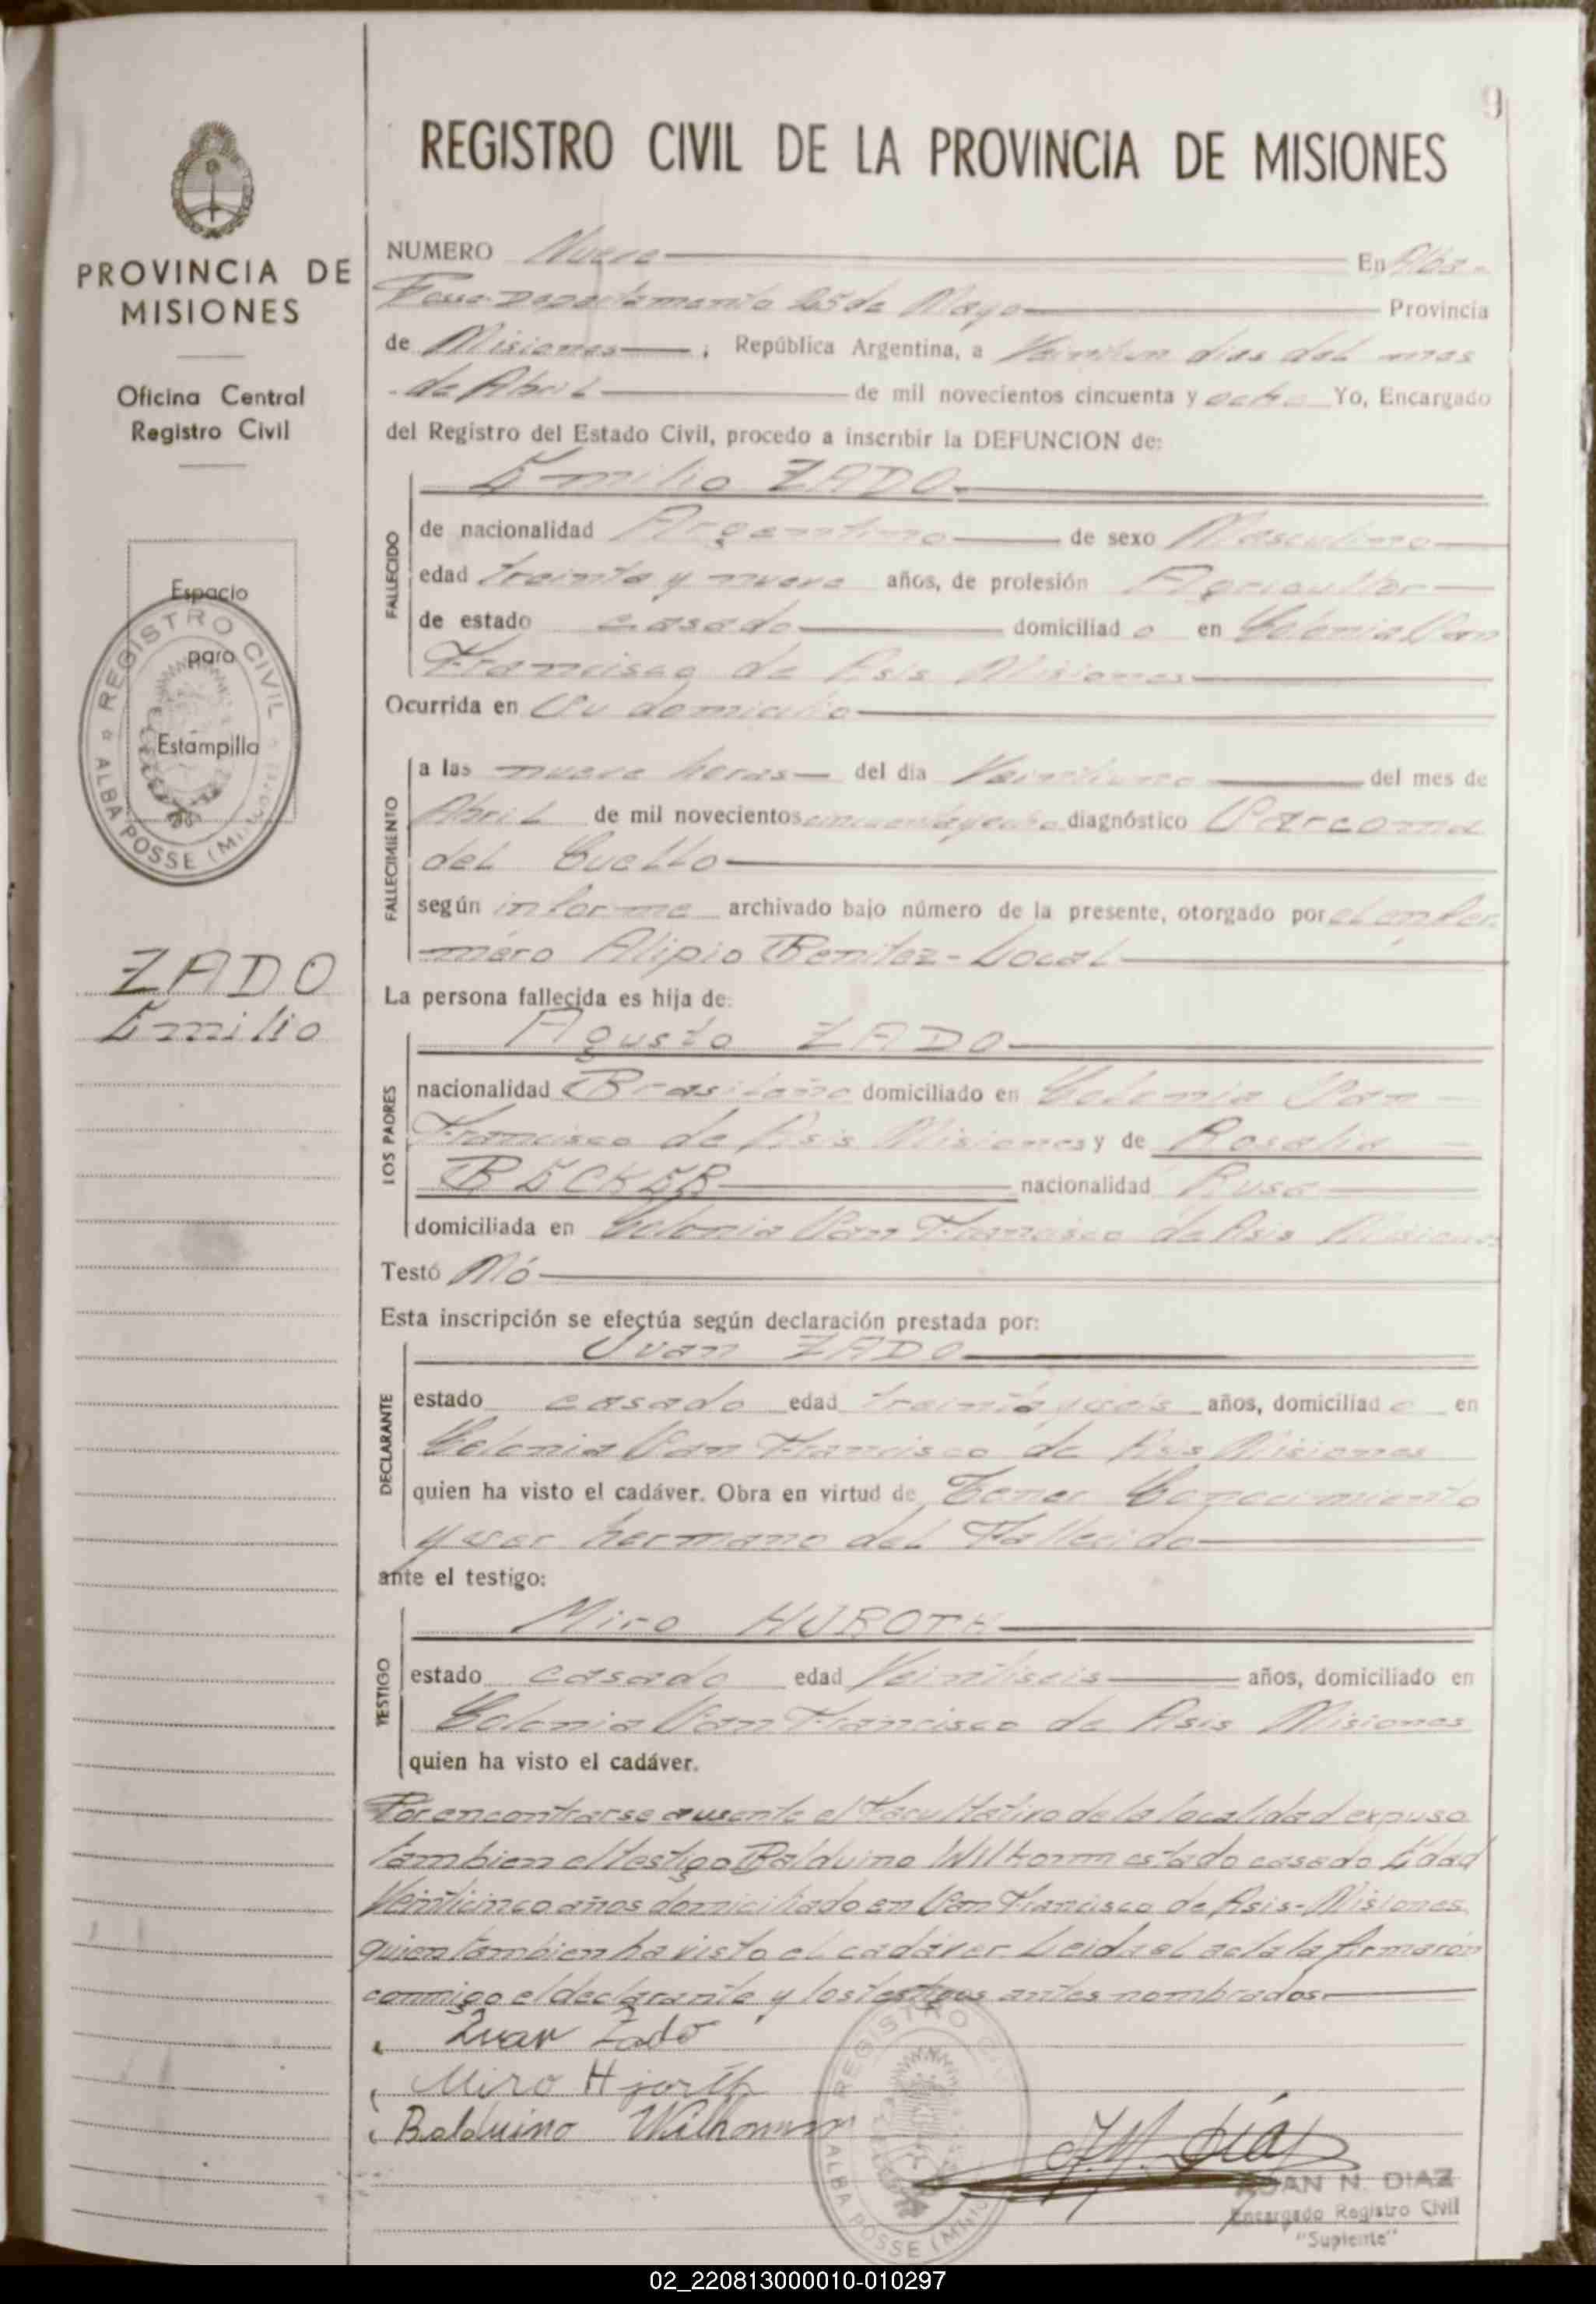 9
REGISTRO CIVIL DE LA PROVINCIA DE MISIONES
PROVINCIA DE
MISIONES
Oficina Central
Registro Civil
Espacio
para
Estampilla
REGISTRO CIVIL
ALBA POSSE
ZADO
Emilio
NUMERO Nueve En Alba
Posse Departamento 25 de Mayo Provincia
de Misiones ; República Argentina, a Veintiun dias del mes
de Abril de mil novecientos cincuenta y ocho Yo, Encargado
del Registro del Estado Civil, procedo a inscribir la DEFUNCION de:
Emilio ZADO
FALLECIDO
de nacionalidad Argentino de sexo Masculino
edad treinta y nueve años, de profesión Agricultor
de estado casado domiciliado en Colonia San
Francisco de Asis Misiones
Ocurrida en Su domicilio
FALLECIMIENTO
a las nueve horas del día Veintiuno del mes de
Abril de mil novecientos cincuenta y ocho diagnóstico Sarcoma
del Cuello
según informe archivado bajo número de la presente, otorgado por el enfer
mero Alipio Benitez - Local
La persona fallecida es hija de:
Agusto ZADO
LOS PADRES
nacionalidad Brasileño domiciliado en Colonia San
Francisco de Asis Misiones y de Rosalia
BECKER nacionalidad Rusa
domiciliada en Colonia San Francisco de Asis Misiones
Testó Nó
Esta inscripción se efectúa según declaración prestada por:
Juan ZADO
DECLARANTE
estado casado edad treinta y seis años, domiciliado en
Colonia San Francisco de Asis Misiones
quien ha visto el cadáver. Obra en virtud de Tener Conocimiento
y ser hermano del Fallecido
ante el testigo:
Miro HUROTH
TESTIGO
estado casado edad Veintiseis años, domiciliado en
Colonia San Francisco de Asis Misiones
quien ha visto el cadáver.
Por encontrarse ausente el Facultativo de la localidad expuso
tambien el testigo Balduino Wilhorm estado casado Edad
Veinticinco años domiciliado en San Francisco de Asis - Misiones
quien tambien ha visto el cadáver Leida el acta la firmarón
conmigo el declarante y los testigos antes nombrados
Juan Zado
Miro Hjorth
Balduino
REGISTRO
ALBA POSSE
J.N. Díaz
JUAN N. DIAZ
Encargado Registro Civil
"Suplente"
02_220813000010-010297